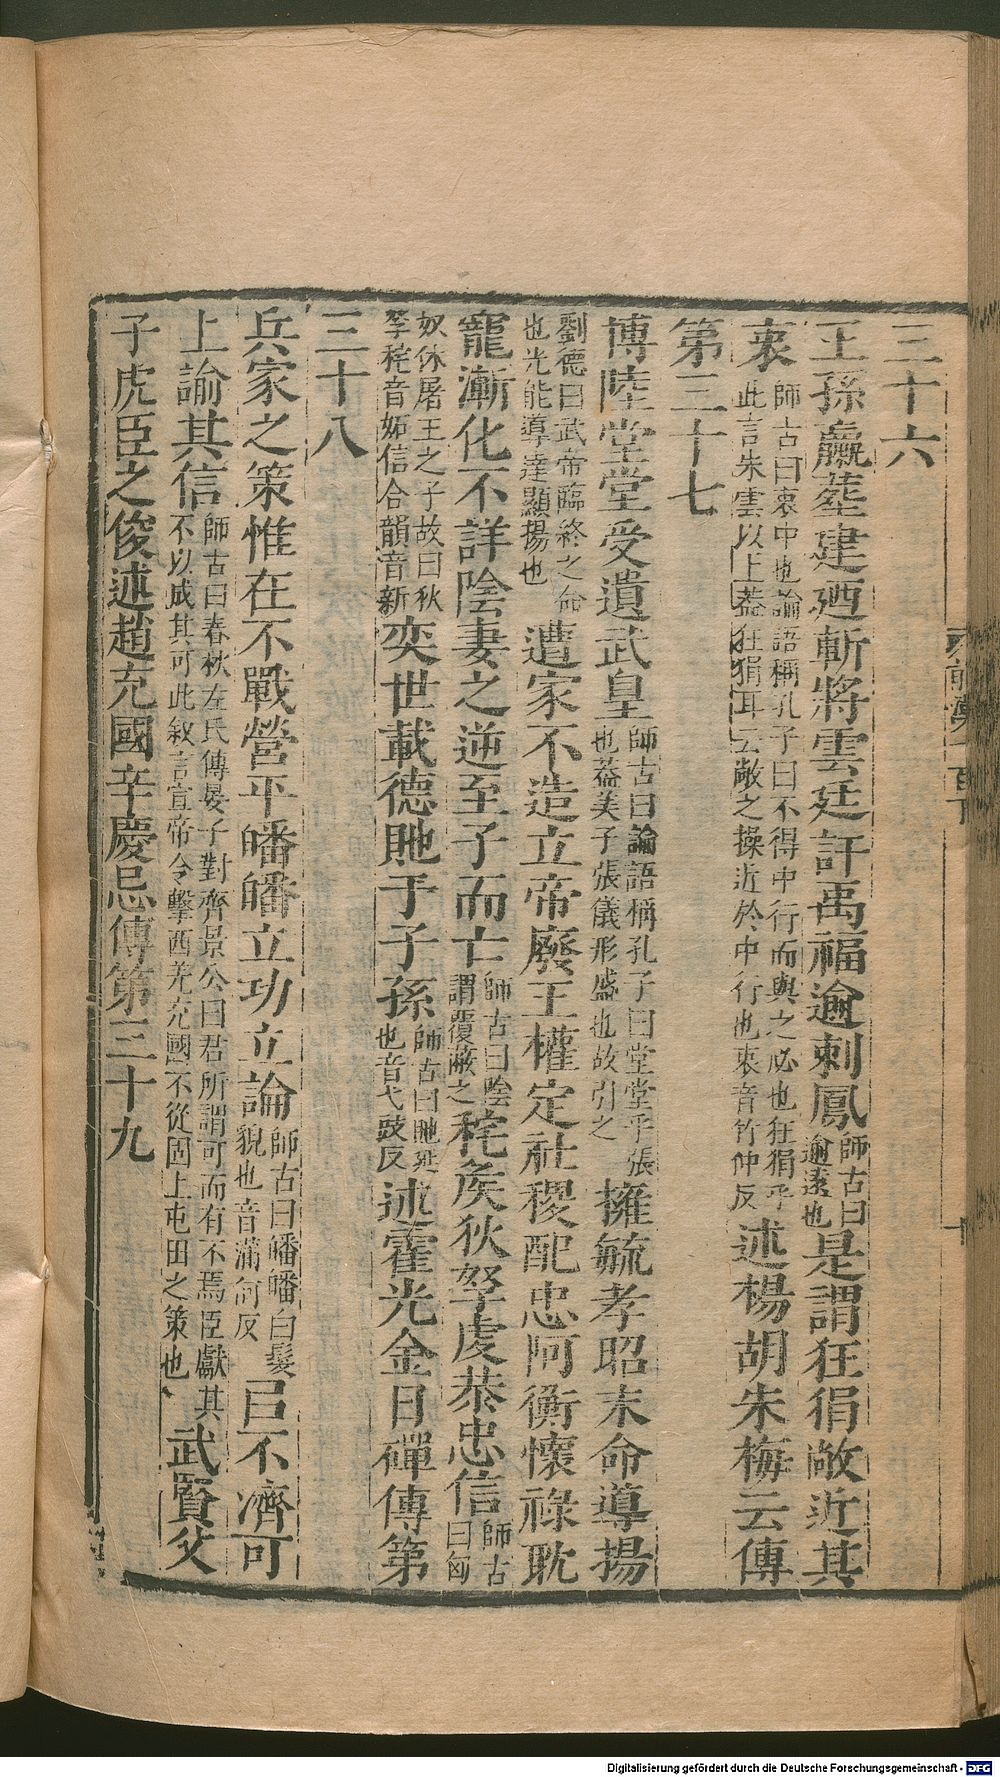 三十六
王孫臝葬建廼斬將雲廷訐禹福逾刺鳳師古曰逾遠也是謂狂狷敞近其
衷師古曰衷中也論語稱孔子曰不得中行而與之必也狂狷乎此言朱雲以上葢狂狷耳云敞之操近於中行也衷音竹仲反述楊胡朱梅云傳
第三十七
博陸堂堂受遺武皇師古曰論語稱孔子曰堂堂乎張也葢美子張儀形盛也故引之擁毓孝昭末命導揚
劉德曰武帝臨終之命也光能導達顯揚也遭家不造立帝廢王權定社稷配忠阿衡懷祿耽
寵漸化不詳陰妻之逆至子而亡師古曰陰謂覆蔽之秺侯狄孥虔恭忠信師古曰匈
奴休屠王之子故曰狄孥秺音妬信合韻音新奕世載德貤于子孫師古曰貤延也音弋豉反述霍光金日磾傳第
三十八
兵家之策惟在不戰營平皤皤立功立論師古曰皤皤白髮貌也音蒲何反㠯不濟可
上諭其信師古曰春秋左氏傳晏子對齊景公曰君所謂可而有不焉臣獻其不以成其可此敘言宣帝令擊西羌充國不從固上屯田之策也武賢父
子虎臣之俊述趙充國辛慶忌傳第三十九
前漢一百下
十
Digitalisierung gefördert durch die Deutsche Forschungsgemeinschaft - DFG